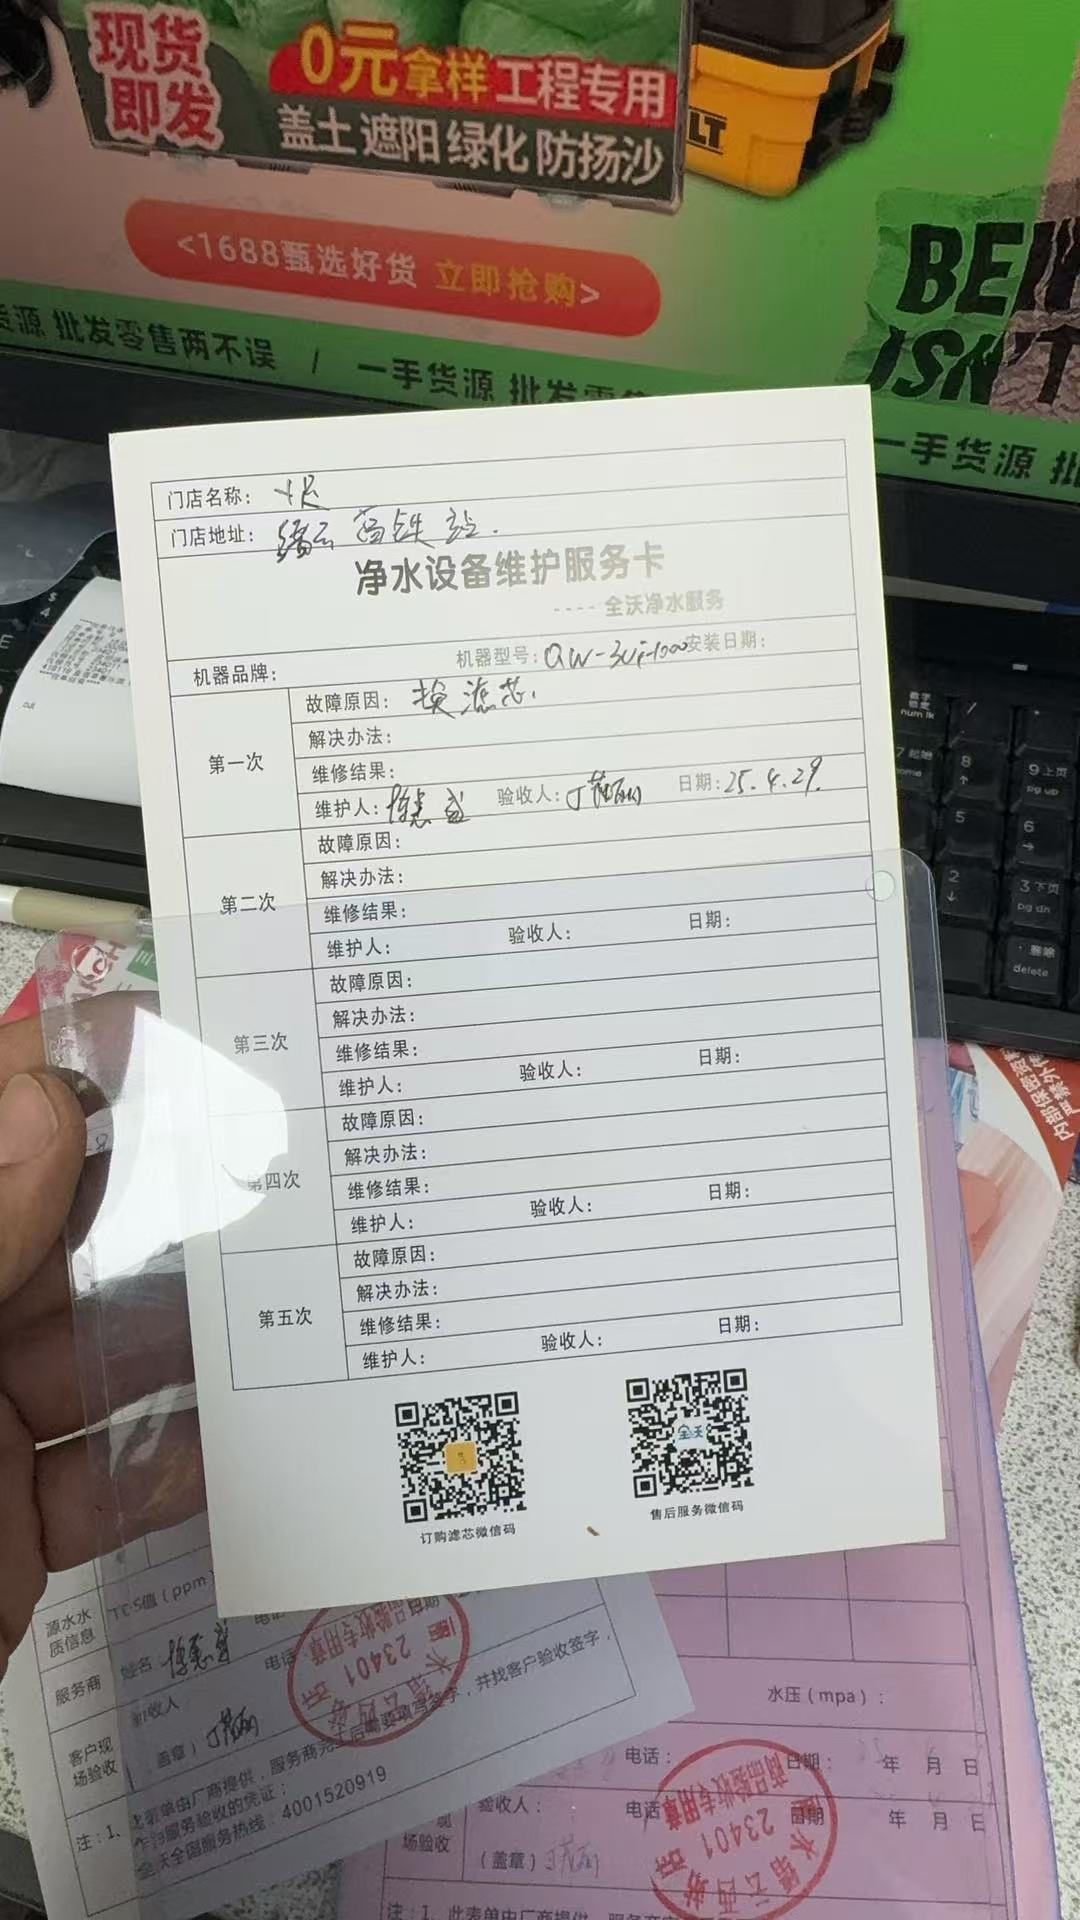 现货
即发
0元拿样 工程专用
盖土 遮阳 绿化 防扬沙
LT
<1688甄选好货 立即抢购>
货源 批发零售两不误 / 一手货源 批发零售
BEI
ISN'T
一手货源 批
门店名称：
门店地址：缙云高铁站.
净水设备维护服务卡
---- 全沃净水服务
机器品牌： 机器型号：QW- 安装日期：
第一次
故障原因：换滤芯.
解决办法：
维修结果：
维护人： 验收人： 日期：25.4.29.
第二次
故障原因：
解决办法：
维修结果：
维护人： 验收人： 日期：
第三次
故障原因：
解决办法：
维修结果：
维护人： 验收人： 日期：
第四次
故障原因：
解决办法：
维修结果：
维护人： 验收人： 日期：
第五次
故障原因：
解决办法：
维修结果：
维护人： 验收人： 日期：
全沃
订购滤芯微信码
售后服务微信码
数字
锁定
num lk
/
7 起始
home
8
9 上页
pg up
5
6
2
3 下页
pg dn
. 删除
delete
cut
源水水
质信息
值（ppm）
服务商
姓名
电话
客户现
场验收
收人
盖章）
商品验收专用章
23401
注：1、
单由厂商提供，服务商完工后需要填写签字，并找客户验收签字，
服务验收的凭证；
全国服务热线：4001520919
水压（mpa）：
电话： 日期： 年 月 日
验收人： 电话 日期 年 月 日
场验收
（盖章）
商品验收专用章
23401
注：1、此表单由厂商提供，服务商